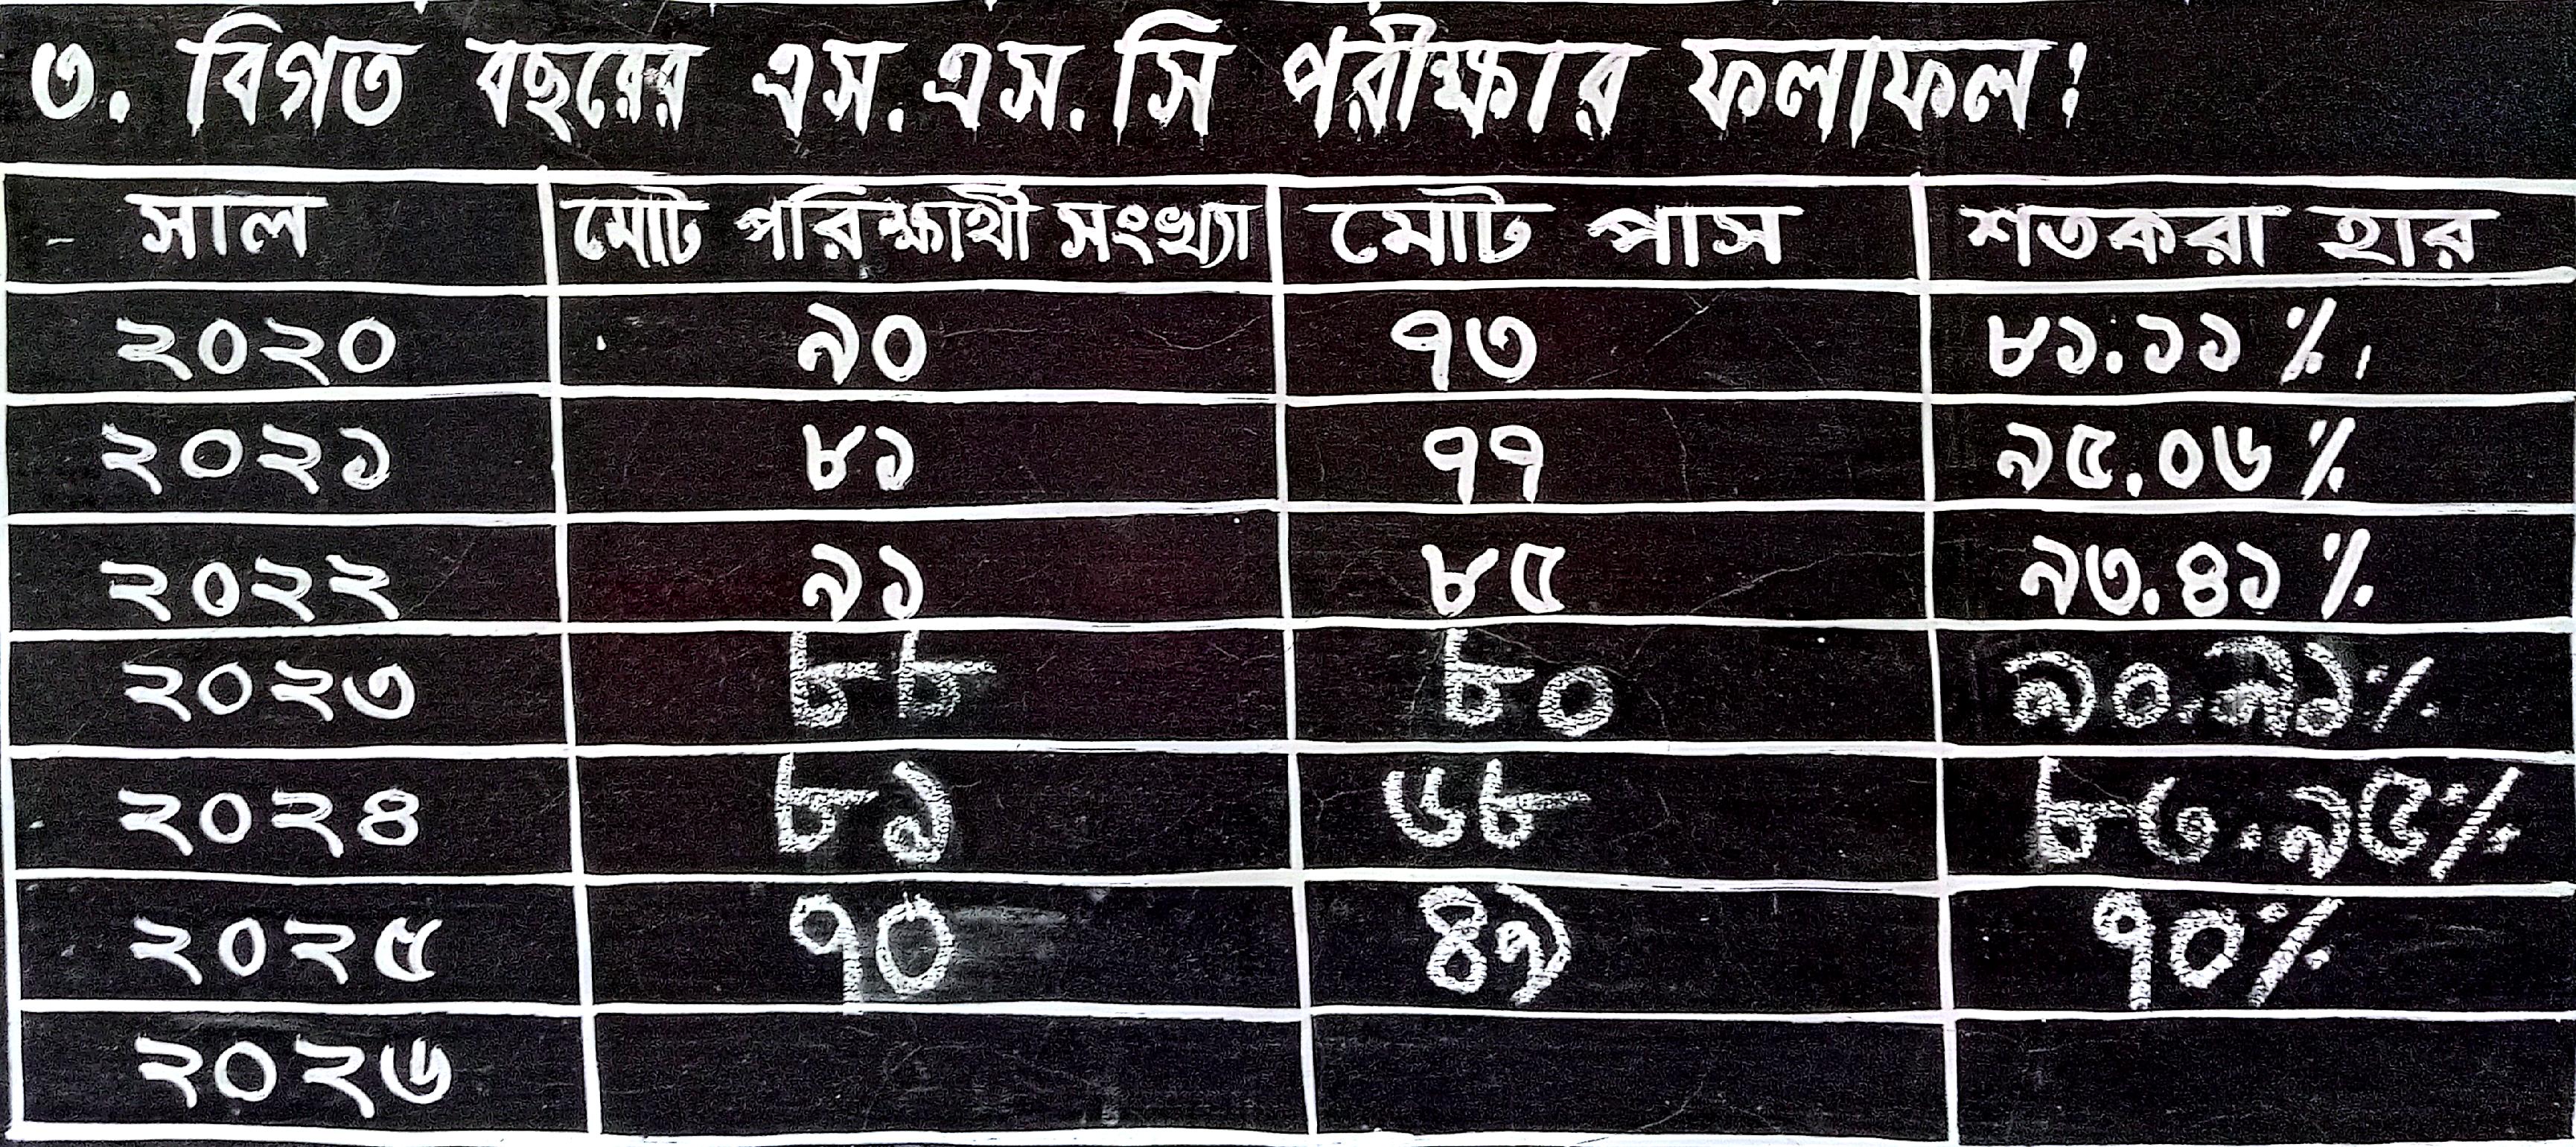 ৩. বিগত বছরের এস.এস.সি পরীক্ষার ফলাফল:
সাল মোট পরিক্ষার্থী সংখ্যা মোট পাস শতকরা হার
২০২০ ৯০ ৭৩ ৮১.১১ %
২০২১ ৮১ ৭৭ ৯৫.০৬ %
২০২২ ৯১ ৮৫ ৯৩.৪১ %
২০২৩ ৮৮ ৮০ ৯০.৯১%
২০২৪ ৮১ ৬৮ ৮৩.৯৫%
২০২৫ ৭০ ৪৯ ৭০%
২০২৬